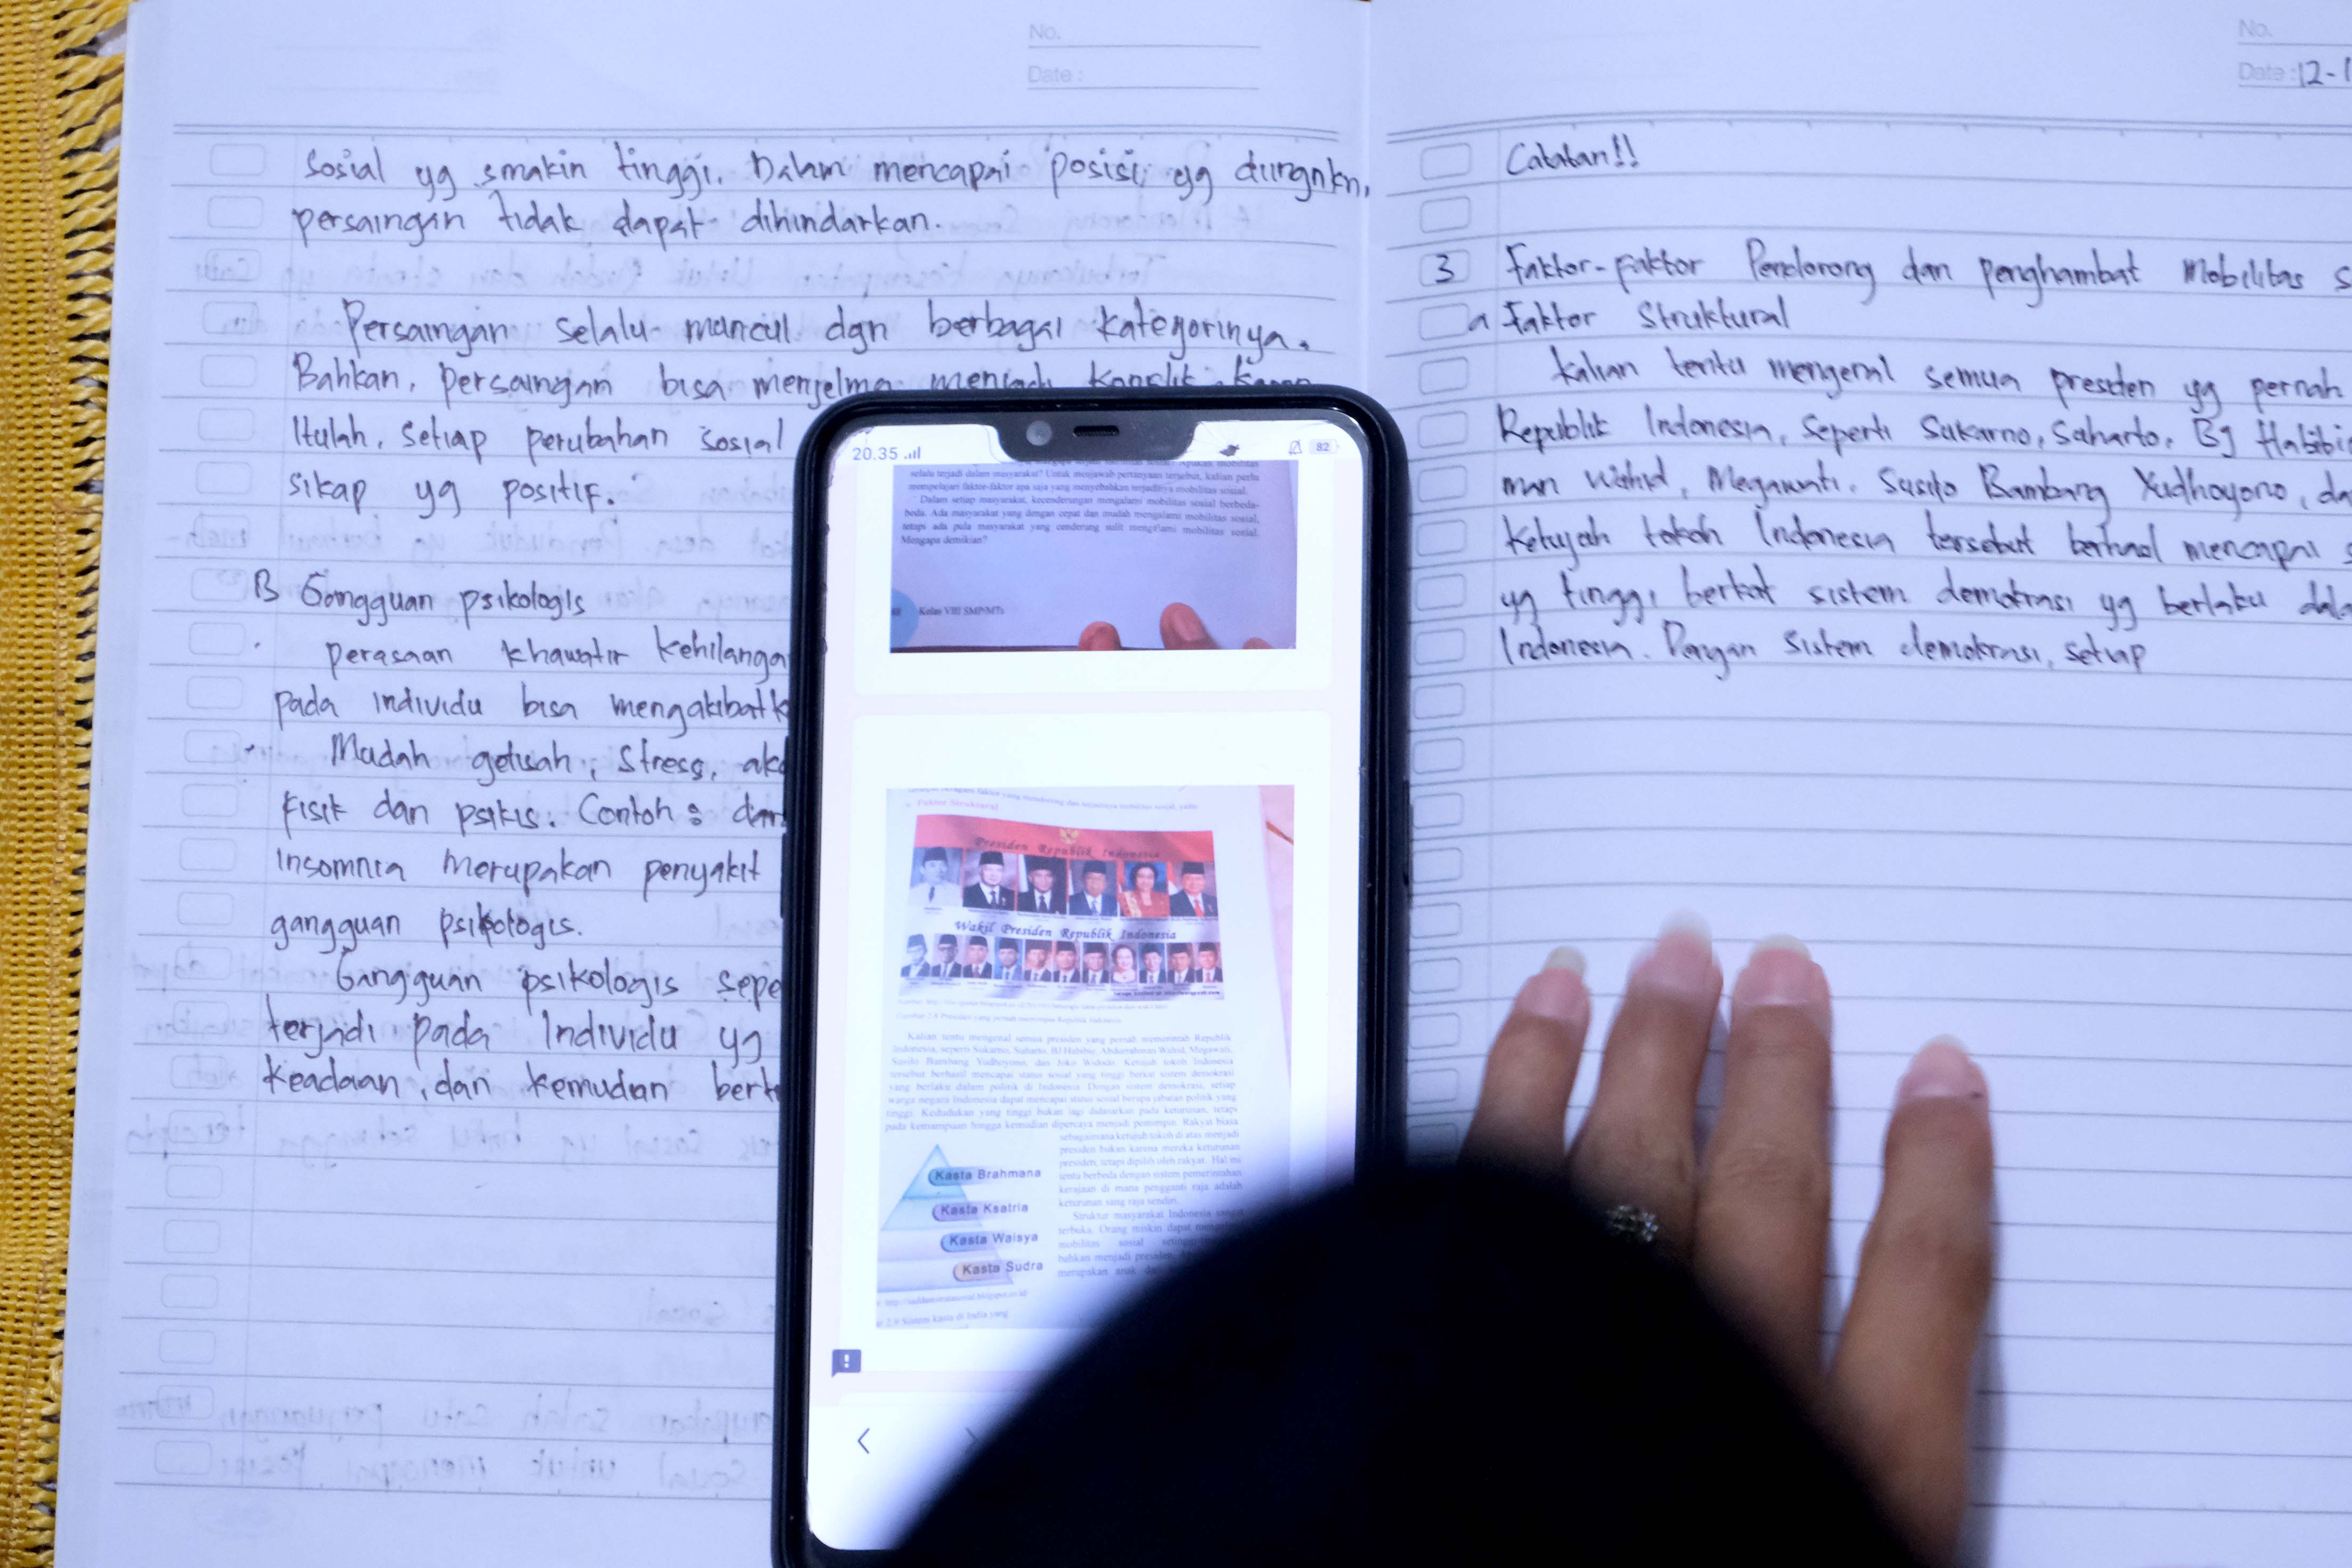 No.
Date :
sosial yg smakin tinggi. Dalam mencapai posisi yg diingnkn,
persaingan tidak dapat dihindarkan.
Persaingan selalu muncul dgn berbagai kategorinya.
Bahkan, persaingan bisa menjelma menjadi konflik. Karen
Itulah, setiap perubahan sosial
sikap yg positif.
B Gangguan psikologis
perasaan khawatir kehilanga
pada individu bisa mengakibatk
Mudah gelisah, stress,
fisik dan psikis. Contoh :
Insomnia merupakan penyakit
gangguan psikologis.
Gangguan psikologis sepe
terjadi pada Individu yg
keadaan, dan kemudian
20.35
82
selalu terjadi dalam masyarakat? Untuk menjawab pertanyaan tersebut, kalian perlu
mempelajari faktor-faktor apa saja yang menyebabkan terjadinya mobilitas sosial.
Dalam setiap masyarakat, kecenderungan mengalami mobilitas sosial berbeda-
beda. Ada masyarakat yang dengan cepat dan mudah mengalami mobilitas sosial,
tetapi ada pula masyarakat yang cenderung sulit mengalami mobilitas sosial.
Mengapa demikian?
Kelas VIII SMP/MTs
Faktor Struktural
Presiden Republik Indonesia
Wakil Presiden Republik Indonesia
Kalian tentu mengenal semua presiden yang pernah memimpin Republik
Indonesia, seperti Sukarno, Suharto, BJ Habibie, Abdurrahman Wahid, Megawati,
Susilo Bambang Yudhoyono, dan Joko Widodo. Ketujuh tokoh Indonesia
tersebut berhasil mencapai status sosial yang tinggi berkat sistem demokrasi
yang berlaku dalam politik di Indonesia. Dengan sistem demokrasi, setiap
warga negara Indonesia dapat mencapai status sosial berupa jabatan politik yang
tinggi. Kedudukan yang tinggi bukan lagi didasarkan pada keturunan, tetapi
pada kemampuan hingga kemudian dipercaya menjadi pemimpin. Rakyat biasa
sebagaimana ketujuh tokoh di atas menjadi
presiden bukan karena mereka keturunan
presiden, tetapi dipilih oleh rakyat. Hal ini
tentu berbeda dengan sistem pemerintahan
kerajaan di mana pengganti raja adalah
keturunan sang raja sendiri.
Struktur masyarakat Indonesia sangat
terbuka. Orang miskin dapat
mobilitas sosial
bahkan menjadi presiden.
merupakan anak
Kasta Brahmana
Kasta Ksatria
Kasta Waisya
Kasta Sudra
2.9 Sistem kasta di India yang
No.
Date : 12-1
Catatan!!
3 Faktor-faktor Pendorong dan penghambat Mobilitas s
a Faktor Struktural
Kalian tentu mengenal semua presiden yg pernah
Republik Indonesia, seperti Sukarno, Suharto, Bj Habibie
man Wahid, Megawati. Susilo Bambang Yudhoyono, da
Ketujuh tokoh Indonesia tersebut berhasil mencapai s
yg tinggi berkat sistem demokrasi yg berlaku dala
Indonesia. Dengan sistem demokrasi, setiap